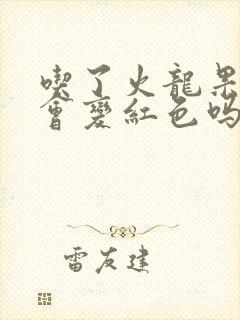 喫了火龍果
會變紅色吗
雷友建